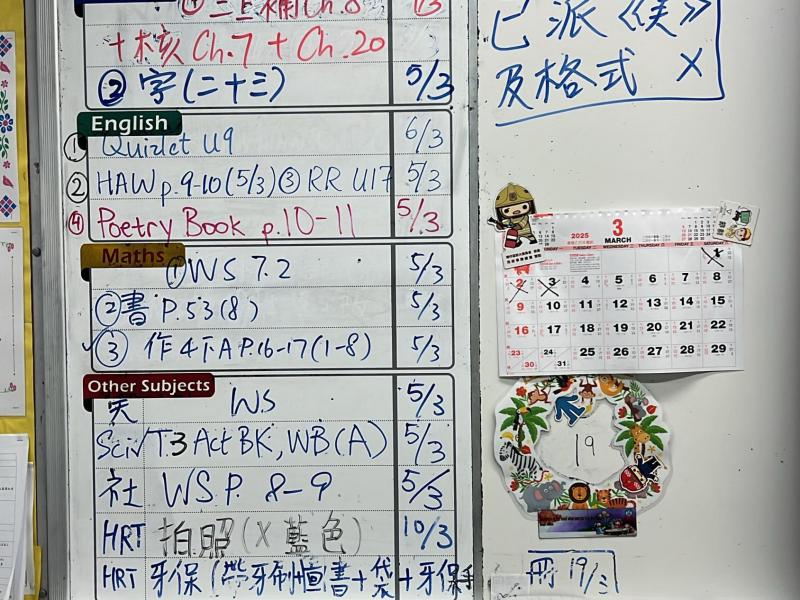 十木亥 Ch.7 + Ch.20
② 字(二十三) 5/3
English
① Quizlet U9 6/3
② HAW p.9-10(5/3) ③ RR U17 5/3
④ Poetry Book p.10-11 5/3
Maths
① WS 7.2 5/3
② 書 P.53(8) 5/3
③ 作 4下A P.16-17(1-8) 5/3
Other Subjects
WS 5/3
Sci√T.3 Act BK, WB(A) 5/3
社 WS P. 8-9 5/3
HRT 拍照(X 藍色) 10/3
HRT 牙保
書+袋+牙保
已派《美》
及格式 X
2025
3
MARCH
TUESDAY WEDNESDAY THURSDAY FRIDAY SATURDAY
1
2 3 4 5 6 7 8
9 10 11 12 13 14 15
16 17 18 19 20 21 22
23 24 25 26 27 28 29
30 31
19
冊 19/3